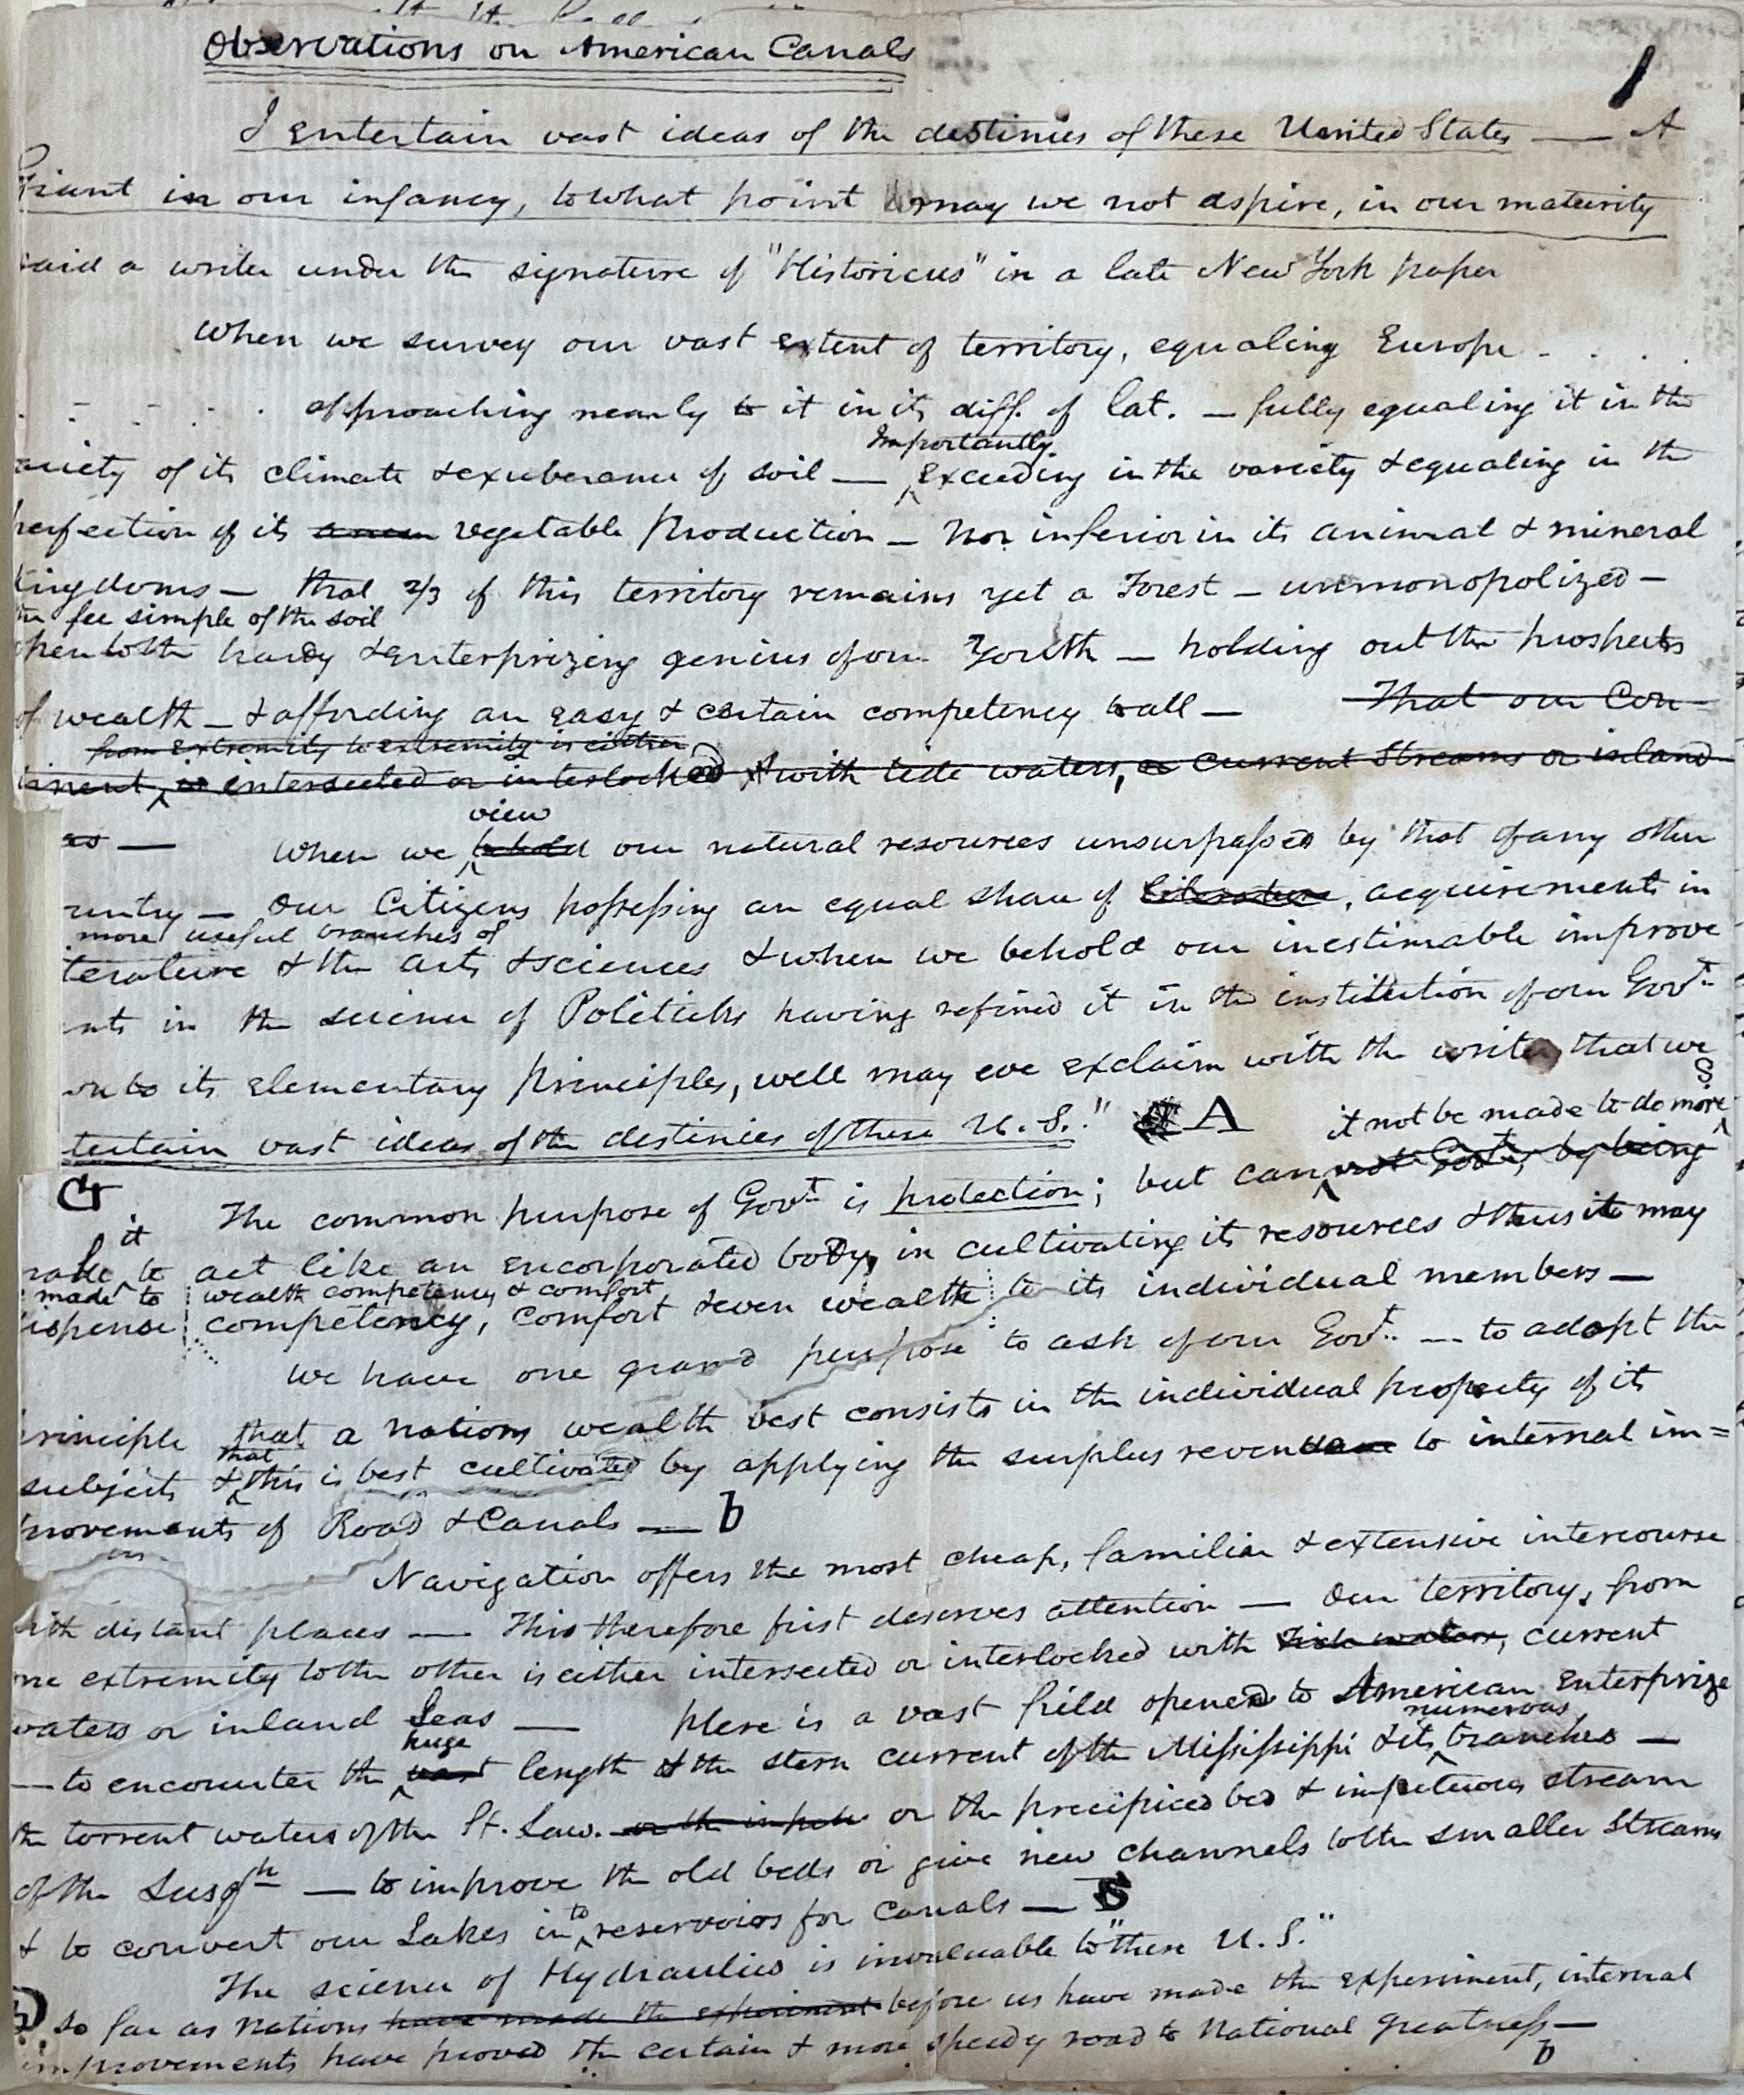 Observations on American Canals
1
I entertain vast ideas of the destinies of these United States — A
Giant in our infancy, to what point may we not aspire, in our maturity
said a writer under the signature of "Historicus" in a late New York paper
When we survey our vast extent of territory, equaling Europe - . . .
. - - - . . approaching nearly to it in its diff. of lat. — fully equaling it in the
Importantly
ariety of its climate & exuberance of soil — ^ Exceeding in the variety & equaling in the
perfection of its vegetable production — Nor inferior in its animal & mineral
kingdoms — that 2/3 of this territory remains yet a Forest — unmonopolized —
the fee simple of the soil
open to the hardy & enterprizing genius of our Youth — holding out the prospects
of wealth — & affording an easy & certain competency to all — That our Con-
from extremity to extremity is either
tinent, ^ is intersected or interlocked with tide waters, or current Streams or inland
as —
view
When we ^ behold our natural resources unsurpassed by that of any other
untry — Our Citizens possessing an equal share of literature, acquirements in
more useful branches of
terature & the arts & sciences & when we behold our inestimable improve
nts in the science of Politicks having refined it in the institution of our Govt.
on to its elementary principles, well may we exclaim with the writer, that we
S
tertain vast ideas of the destinies of these U.S." A
it not be made to do more ^
G
The common purpose of Govt. is protection; but can ^ not Govt, by being
it
made ^ to act like an encorporated body, in cultivating its resources & thus it may
made to wealth competency & comfort
dispense competency, comfort & even wealth to its individual members —
We have one grand purpose to ask of our Govt. — to adopt the
principle that a nations wealth best consists in the individual property of its
that
subjects & ^ this is best cultivated by applying the surplus revenue to internal im=
provements of Road & Canals — b
Navigation offers the most cheap, familiar & extensive intercourse
with distant places — This therefore first deserves attention — Our territory, from
one extremity to the other is either intersected or interlocked with tide waters, current
waters or inland Seas — Here is a vast field opened to American Enterprize
huge
numerous
— to encounter the ^ vast length & the stern current of the Mississippi & its ^ branches —
the torrent waters of the St. Law. or the impetu or the precipiced bed & impetuous stream
of the Susqh — to improve the old beds or give new channels to the smaller Streams
to
& to convert our Lakes in ^ reservoirs for Canals — S
The science of Hydraulics is invaluable to "these U.S."
D so far as nations have made the experiment before us have made the experiment, internal
improvements have proved the certain & more speedy road to National greatness —
b